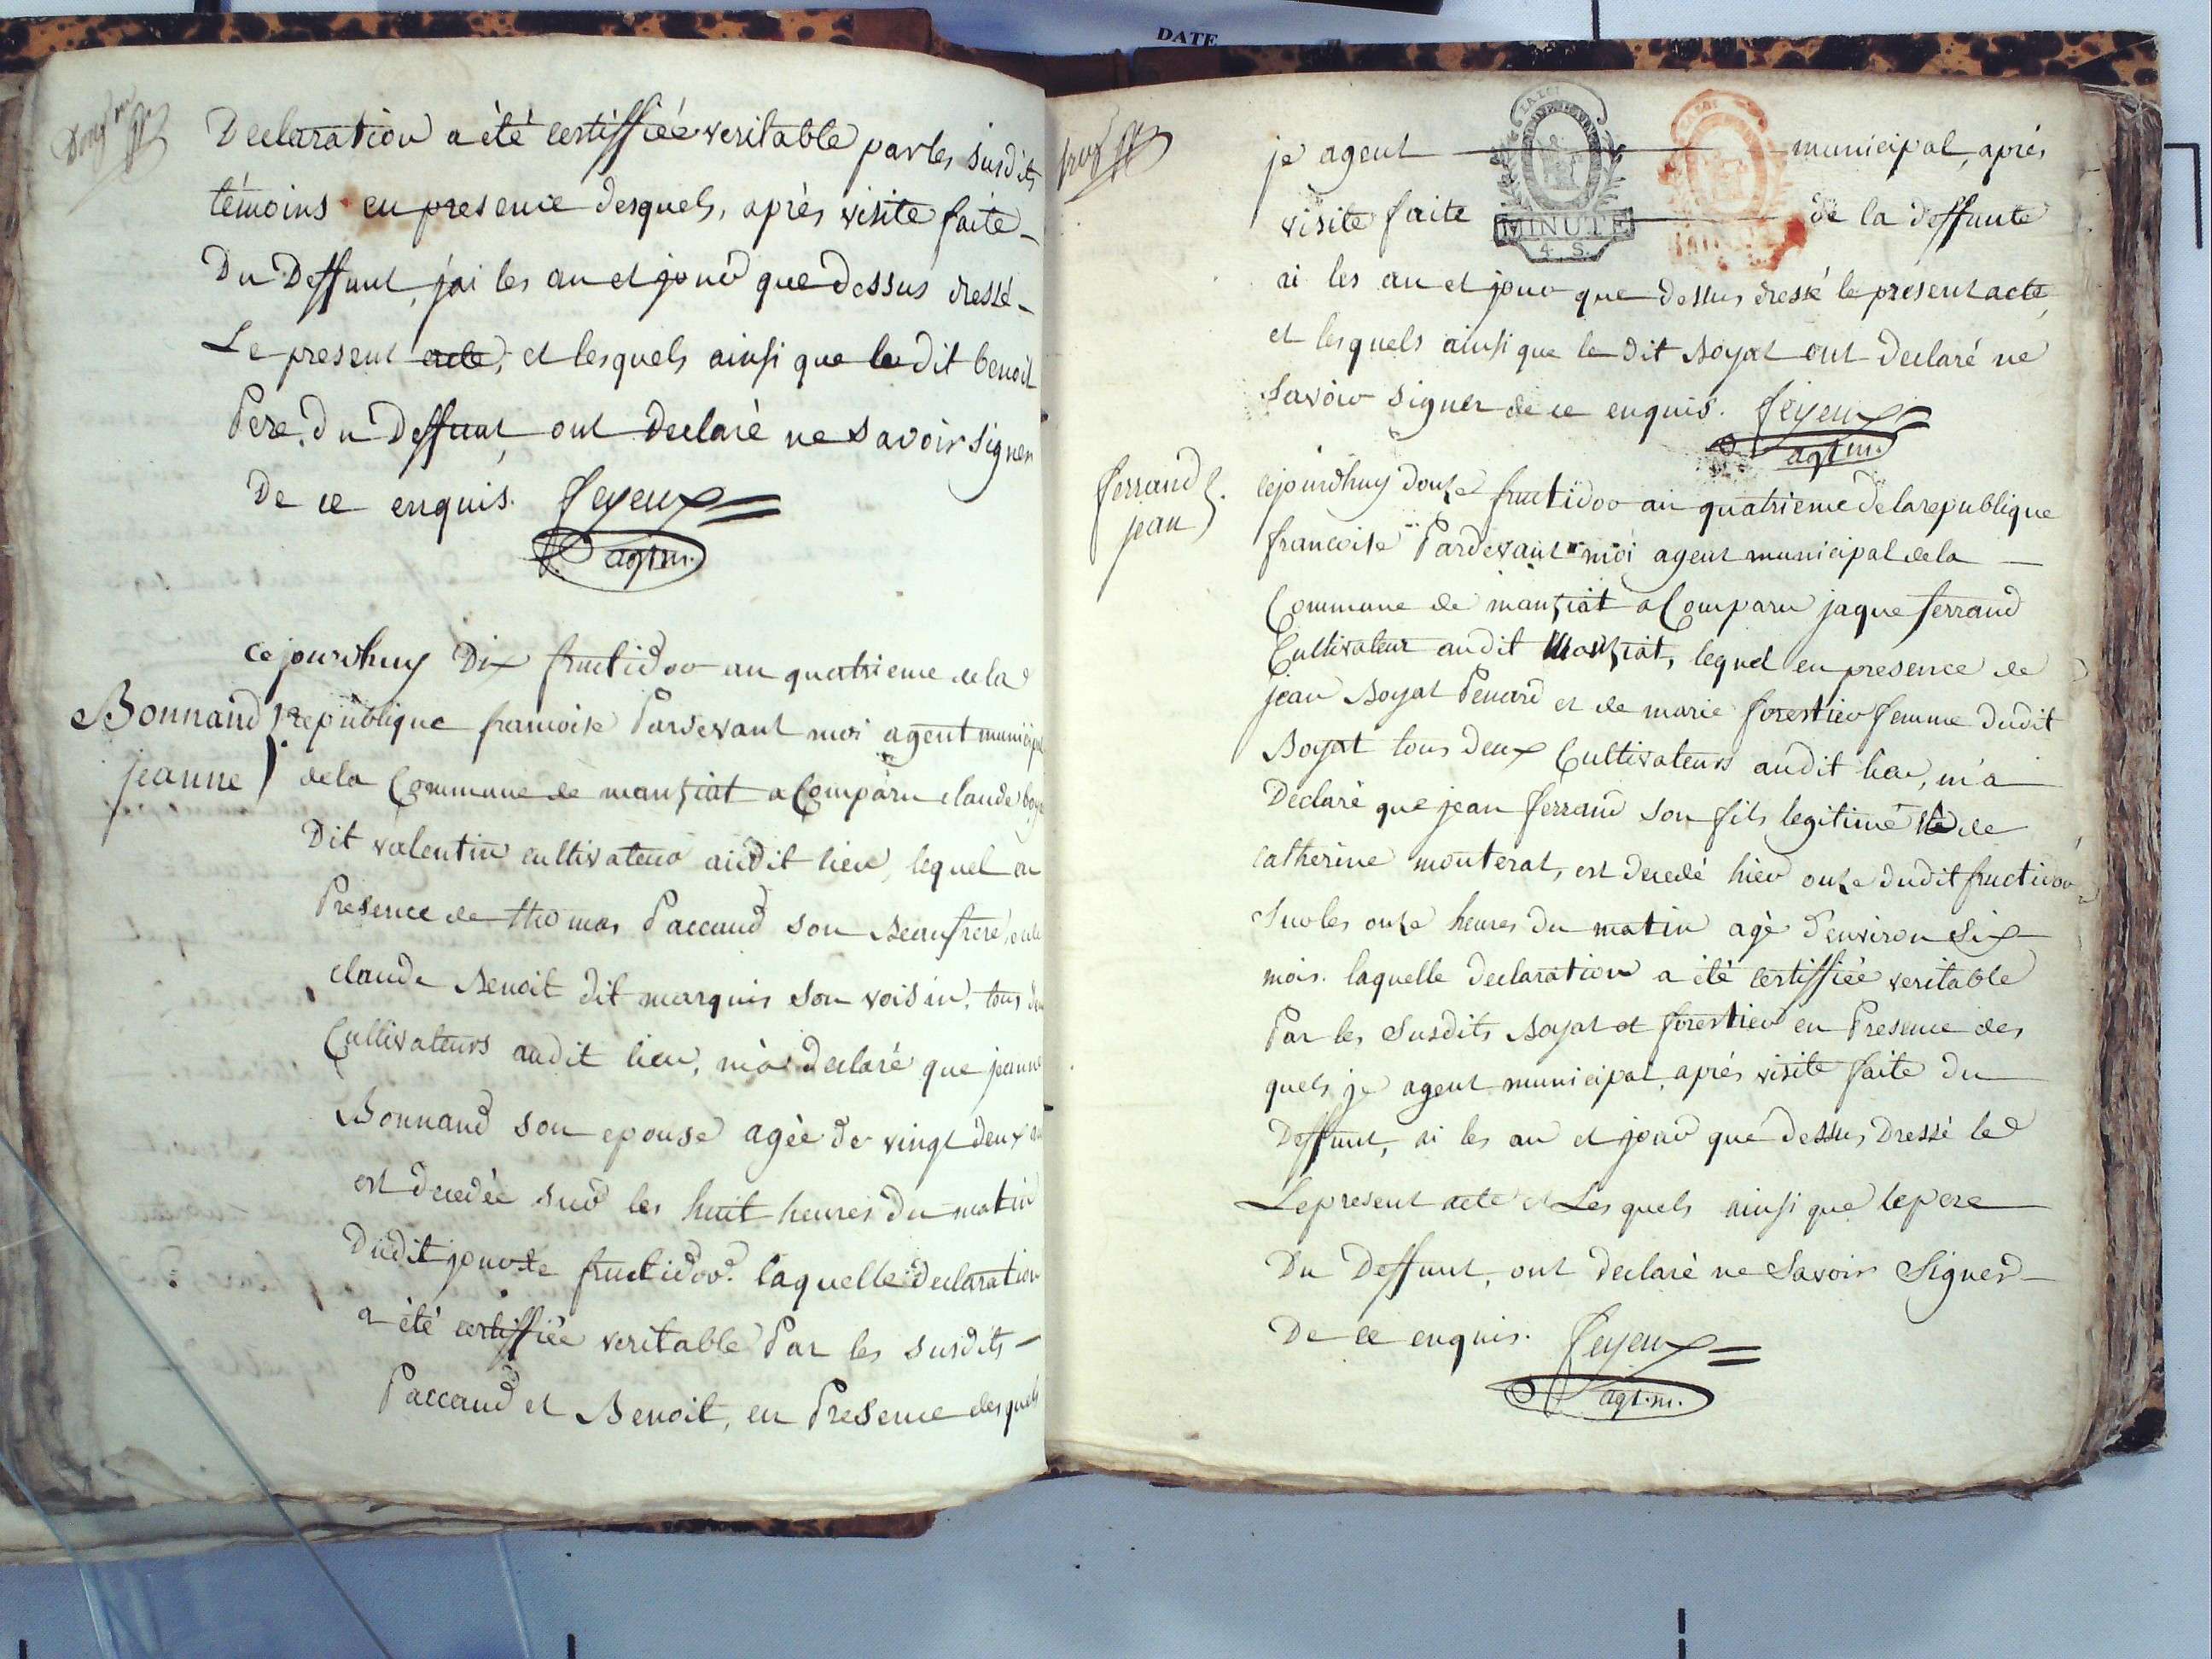 DATE
Declaration a été certiffiée veritable par les susdits
témoins en presence desquels, après visite faite
Du Deffunt, j'ai les an et jour que dessus dressé
Le present acte, et lesquels ainsi que le dit benoit
Pere du Deffunt, ont declaré ne savoir signer
De ce enquis. feyeux
agt m.
Cejourdhuy Dix fructidor an quatrieme de la
Bonnand jeanne
republique francoise Pardevant moi agent municipal
de la Commune de manziat a Comparu claude
Dit valentin cultivateur audit lieu, lequel en
Presence de thomas Paccaud son Beaufrere,
claude Benoit dit marquis son voisin, tous
Cultivateurs audit lieu, m'a declaré que jeanne
Bonnand son epouse agée de vingt deux
est decedée sur les huit heures du matin
Dudit jour de fructidor. laquelle declaration
a été certiffiée veritable Par les susdits
Paccaud et Benoit, en Presence desquels
je agent municipal, après
LA LOI
MINUTE
4. S.
visite faite de la deffunte
ai les an et jour que dessus dressé le present acte,
et lesquels ainsi que le dit Boyat ont declaré ne
Savoir signer de ce enquis. feyeux
agt m.
ferrand jean
cejourdhuy douze fructidor an quatrieme de la republique
francoise Pardevant moi agent municipal de la
Commune de manziat a Comparu jaque ferrand
Cultivateur audit Manziat, lequel en presence de
jean Boyat Penard et de marie forestier femme dudit
Boyat tous deux Cultivateurs audit lieu, m'a
Declaré que jean ferrand son fils legitime de
catherine monterat, est decedé hier onze dudit fructidor
Sur les onze heures du matin agé d'environ Six
mois. laquelle declaration a été certiffiée veritable
Par les Susdits Boyat et forestier en Presence des
quels je agent municipal, après visite faite du
Deffunt, ai les an et jour que dessus Dressé le
Le present acte et Lesquels ainsi que le pere
Du Deffunt, ont declaré ne Savoir Signer
De ce enquis. feyeux
agt. m.